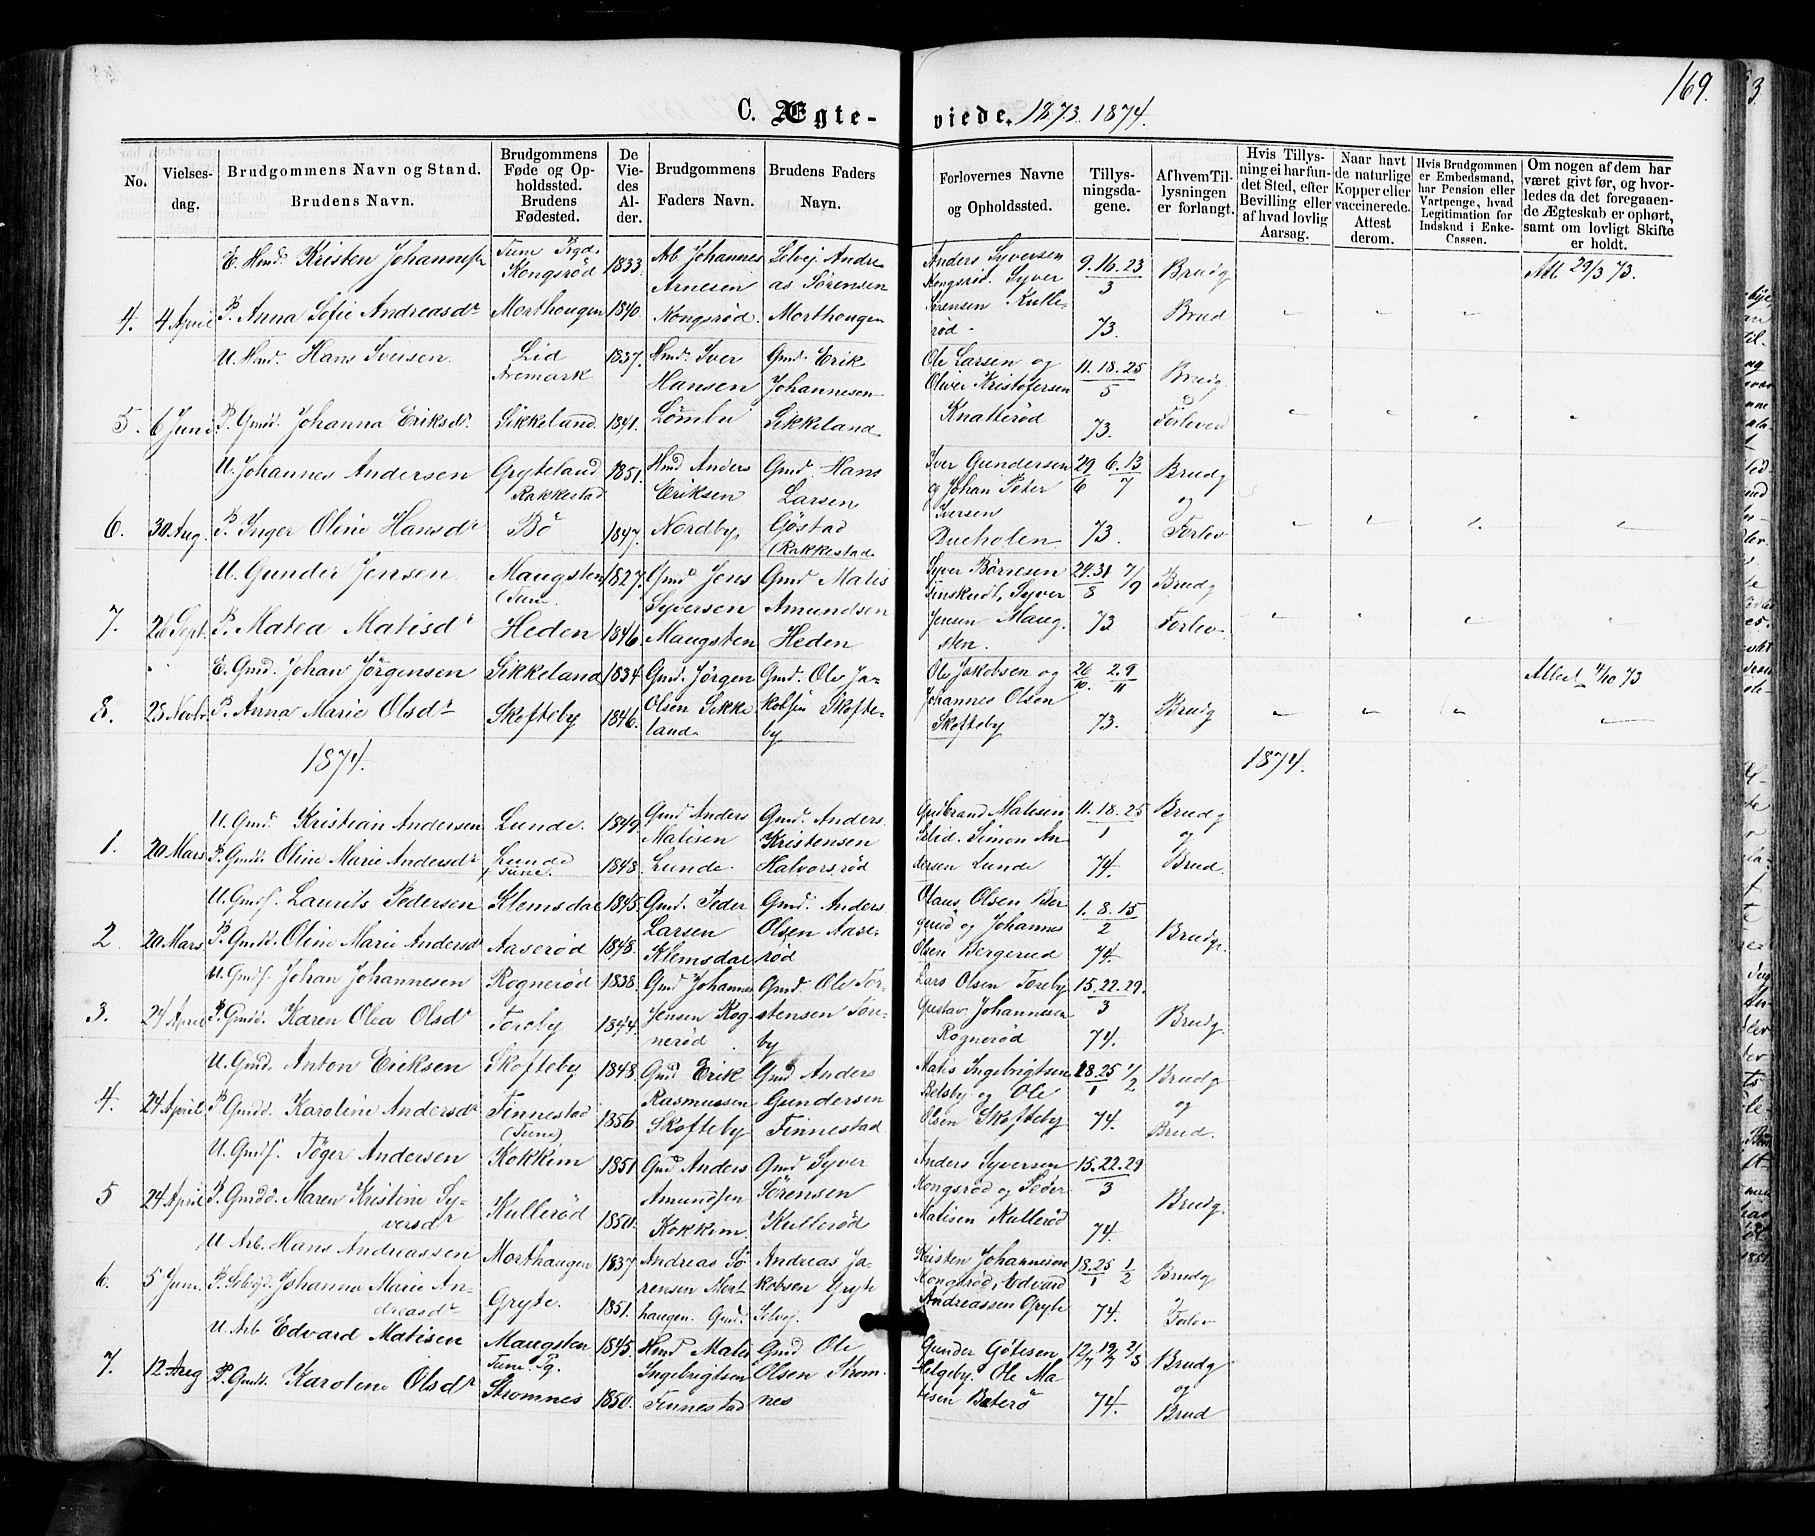 169.
C. Ægte- viede. 1873. 1874.
No.
Vielses-
dag.
Brudgommens Navn og Stand.
Brudens Navn.
Brudgommens
Føde og Op-
holdssted.
Brudens
Fødested.
De
Vie-
des
Al-
der.
Brudgommens
Faders Navn.
Brudens Faders
Navn.
Forlovernes Navne
og Opholdssted.
Tillys-
ningsda-
gene.
Af hvem Til-
lysningen
er forlangt.
Hvis Tillys-
ning ei har fun-
det Sted, efter
Bevilling eller
af hvad lovlig
Aarsag.
Naar havt
de naturlige
Kopper eller
vaccinerede.
Attest
derom.
Hvis Brudgommen
er Embedsmand,
har Pension eller
Vartpenge, hvad
Legitimation for
Indskud i Enke-
Cassen.
Om nogen af dem har
været givt før, og hvor-
ledes da det foregaaen-
de Ægteskab er ophørt,
samt om lovligt Skifte
er holdt.
4. 4 April
E. Hmd. Kristen Johannes
P. Anna Sofie Andreasdr
Tune Pgd.
Kongsrød
Morthaugen
1833.
1840.
Arb. Johannes
Arnesen
Kongsrød.
Selvej Andre
as Sørensen
Morthaugen
Anders Syversen
Kongsrød. Syver
Sørensen Kulle-
rød.
9. 16. 23
3
73.
Brudg
Brud
Att 29/3 73.
5. 6 Juni
U. Hmd. Hans Iversen.
P. Gmdd. Johanna Eriksdr.
Lid
Aremark
Sikkeland.
1837.
1841.
Hmd. Iver
Hansen
Lømbu
Gmd. Erik
Johannesen
Sikkeland
Ole Larsen og
Oliver Kristofersen
Knatterød
11. 18. 25
5
73.
Brudg
o
Forlover
6. 30 Aug.
U. Johannes Andersen
P. Inger Oline Hansdr
Gryteland
Rakkestad
Bö
1851.
1847.
Hmd Anders
Eriksen
Nordby,
Gmd. Hans
Larsen
Göstad
(Rakkestad
Iver Gundersen
og Johan Peter
Iversen
Bueholen
29 6. 13
6 7
73.
Brudg
og
Forlov
7. 26 Sept.
U. Gunder Jensen.
P. Matea Matisdr
Maugsten
(Tune.
Heden
1827.
1846.
Gmd Jens
Syversen
Maugsten
Gmd Matis
Amundsen
Heden
Syver Børresen
Syver
Jensen Maug-
sten.
24. 31 7/9
8
73
Brudg
Forlov
8. 23 Novbr.
E. Gmd. Johan Jørgensen
P. Anna Marie Olsdr
Sikkeland
Skofteby
1834.
1846.
Gmd. Jørgen
Olsen Sikke
land.
Gmd. Ole Ja-
kobsen Skofte-
by
Ole Jakobsen og
Johannes Olsen
Skofteby
26 2. 9
10. 11
73.
Brudg
Attest 4/10 73
1874. 1874.
1. 20 Mars
U. Gmd. Kristian Andersen
P. Gmdd. Oline Marie Andersdr
Lunde.
Lunde
Tune.
1849.
1848.
Gmd Anders
Matisen
Lunde
Gmd. Anders
Kristensen
Halvorsrød
Gudbrand Matisen
Simon An
dersen Lunde
11. 18. 25
1
74.
Brudg
og
Brud.
2 20 Mars
U. Gmds. Laurits Pedersen
P. Gmdd. Oline Marie Andersdr
Klemsdal
Aaserød
1845.
1848.
Gmd. Peder
Larsen
Klemsdal
Gmd. Anders
Olsen Aase-
rød
Olaus Olsen Ber
gerud og Johannes
Olsen Bergerud
1. 8. 15
2
74.
Brudg.
3. 24 April
U. Gmds. Johan Johannesen
P. Gmdd. Karen Olea Olsdr
Rognerød
Toreby
1838.
1844.
Gmd Johannes
Jensen Rog-
nerød
Gmd. Ole Tor-
stensen Tore-
by
Lars Olsen Toreby
Gustav Johannesen
Rognerød
15. 22. 29.
3
74.
Brudg.
4. 24 April
U. Gmd. Anton Eriksen
P. Gmdd. Karoline Andersdr
Skofteby
Finnestad
(Tune)
1848.
1856.
Gmd Erik
Rasmussen
Skofteby
Gmd Anders
Gundersen
Finnestad
Matis Ingebrigtsen
Ole
Olsen Skofteby
18. 25 1/2
1
74.
Brudg
og
Brud.
5 24 April
U. Gmds. Tøger Andersen
P. Gmdd. Maren Kristine Sy-
versdr
Kokkim
Kullerød
1851
1850.
Gmd Anders
Amundsen
Kokkim.
Gmd Syver
Sørensen
Kullerød
Anders Syversen
Kongsrød og Peder
Matisen Kullerød
15. 22. 29
3
74.
Brudg.
6. 5 Juni.
U. Arb. Hans Andreassen
P. Selvejd. Johanna Marie An-
dreasdr
Morthaugen
Gryte.
1837
1851.
Andreas Sö
rensen Mort
haugen. Gmd.
Andreas Ja-
kobsen Gryte
Selvej.
Kristen Johannesen
Kongsrød, Edvard
Andreassen Gryte
18. 25 1
1 2
74.
Brudg
o
Forlov
7. 12 Aug
U. Arb Edvard Matisen
P. Gmdd. Karoline Olsdr
Maugsten
Tune Pg.
Strømnes
1845.
1850.
Hmd Matis
Ingebrigtsen
Finnestad
Gmd Ole
Olsen Strøm-
nes
Gunder Götesen
Helgeby. Ole Ma-
tisen Baterö
12/7 19/7 2/8
74.
Brudg
og
Brud